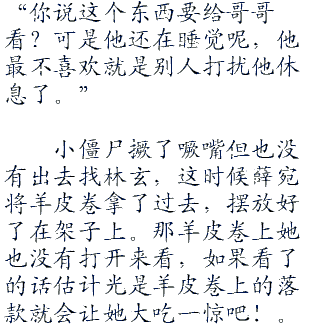 “你说这个东西要给哥哥
看？可是他还在睡觉呢，他
最不喜欢就是别人打扰他休
息了。”
小僵尸撅了噘嘴但也没
有出去找林玄，这时候薛宛
将羊皮卷拿了过去，摆放好
了在架子上。那羊皮卷上她
也没有打开来看，如果看了
的话估计光是羊皮卷上的落
款就会让她大吃一惊吧！。